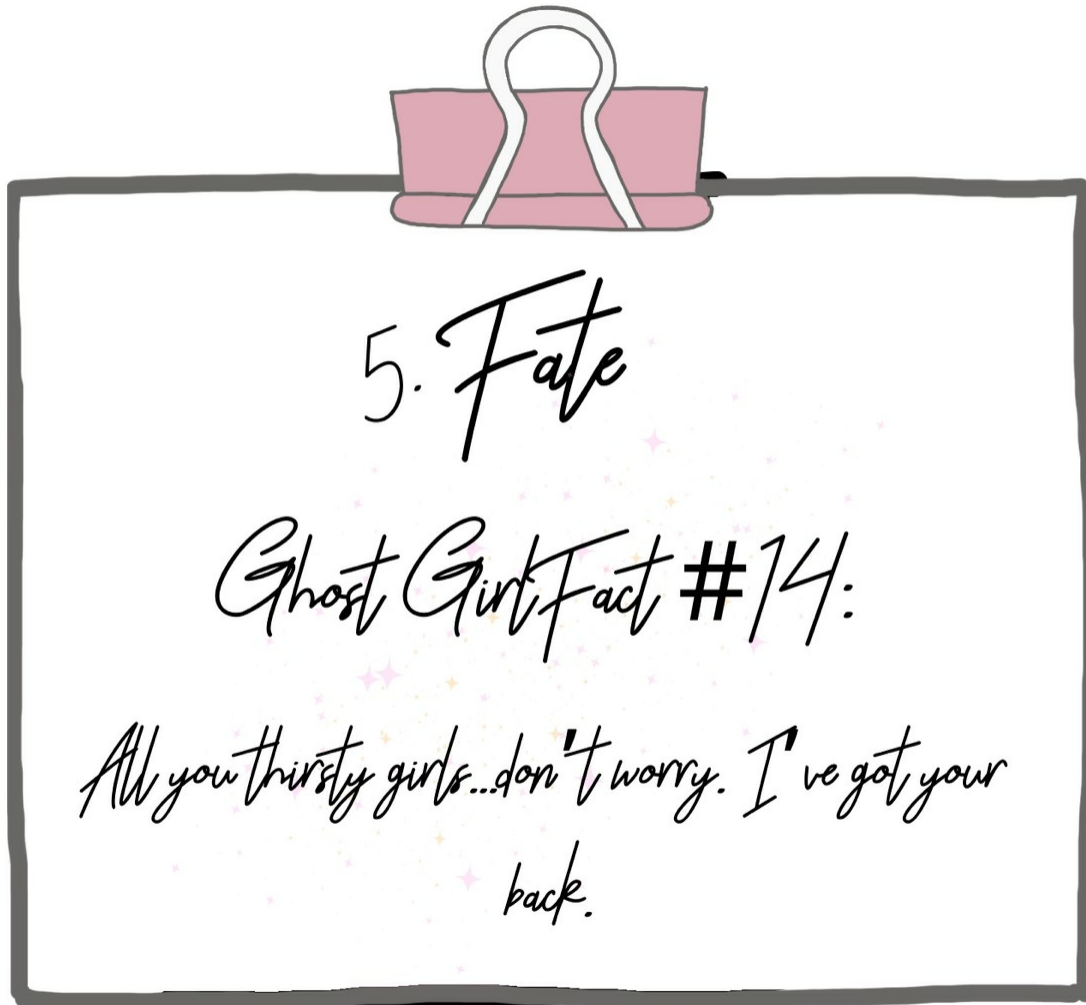 5. Fate
Ghost Girl Fact #14:
All you thirsty girls...don't worry. I've got your
back.